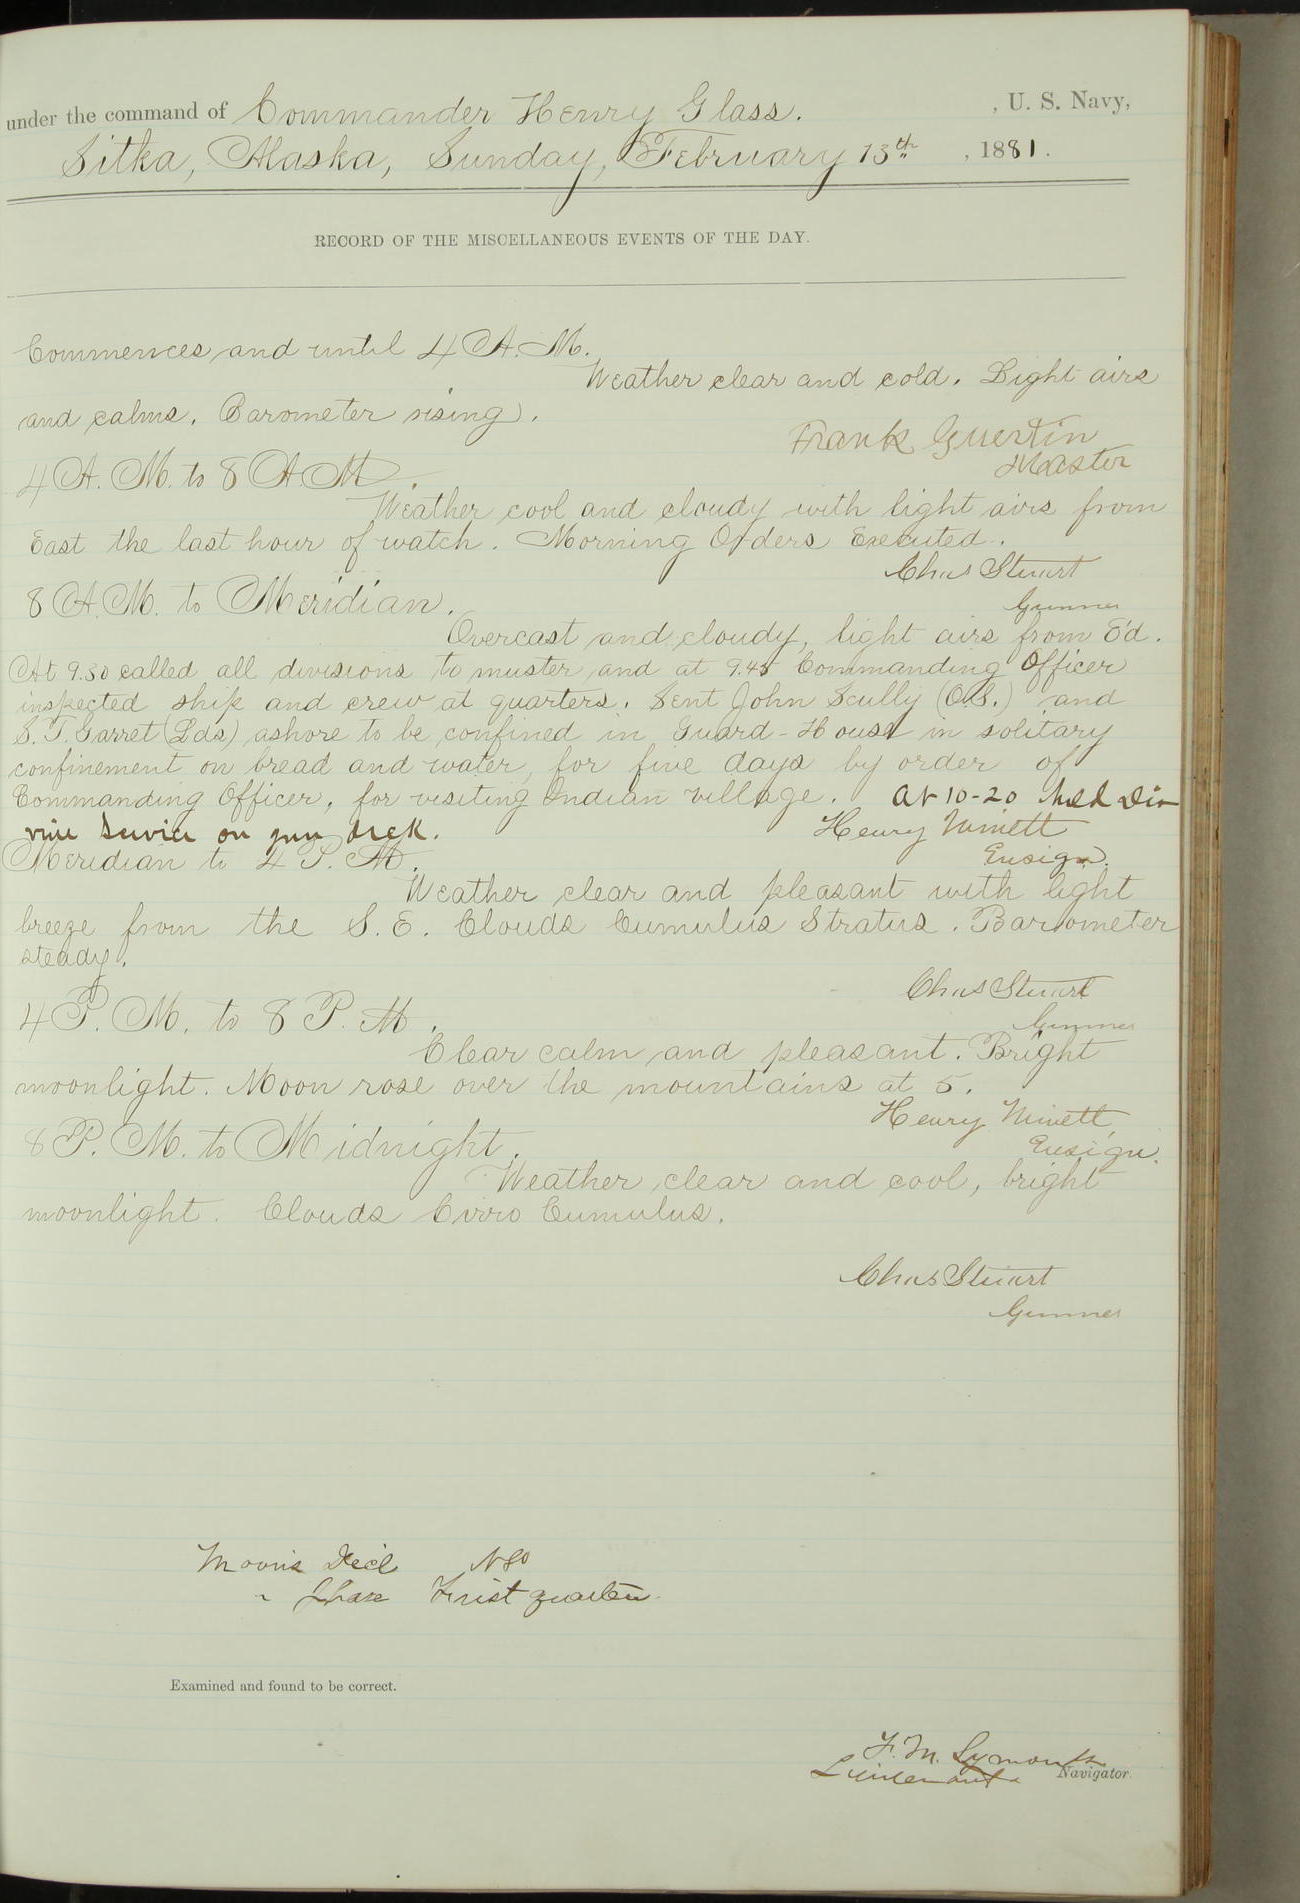 under the command of Commander Henry Glass. , U. S. Navy,
Sitka, Alaska, Sunday, February 13th , 1881.
RECORD OF THE MISCELLANEOUS EVENTS OF THE DAY.
Commences and until 4 A. M.
Weather clear and cold. Light airs
and calms. Barometer rising.
Frank Guertin
Master
4 A. M. to 8 A M.
Weather cool and cloudy with light airs from
East the last hour of watch. Morning Orders Executed.
Chas Stuart
Gunner
8 A. M. to Meridian.
Overcast and cloudy, light airs from E'd.
At 9.30 called all divisions to muster and at 9.45 Commanding Officer
inspected ship and crew at quarters. Sent John Scully (O.S.) and
S. T. Garret (Lds) ashore to be confined in Guard-House in solitary
confinement on bread and water, for five days by order of
Commanding Officer, for visiting Indian village. At 10-20 held Div
vine Service on gun deck.
Henry Minett
Ensign.
Meridian to 4 P. M.
Weather clear and pleasant with light
breeze from the S. E. Clouds Cumulus Stratus. Barometer
steady.
Chas Stuart
Gunner
4 P. M. to 8 P. M.
Clear calm and pleasant. Bright
moonlight. Moon rose over the mountains at 5.
Henry Minett,
Ensign.
8 P. M. to Midnight.
Weather clear and cool, bright
moonlight. Clouds Cirro Cumulus.
Chas Stuart
Gunner
Moon's Decl
" Phase First quarter
Examined and found to be correct.
F. M. Symonds
Lieutenant &
Navigator.